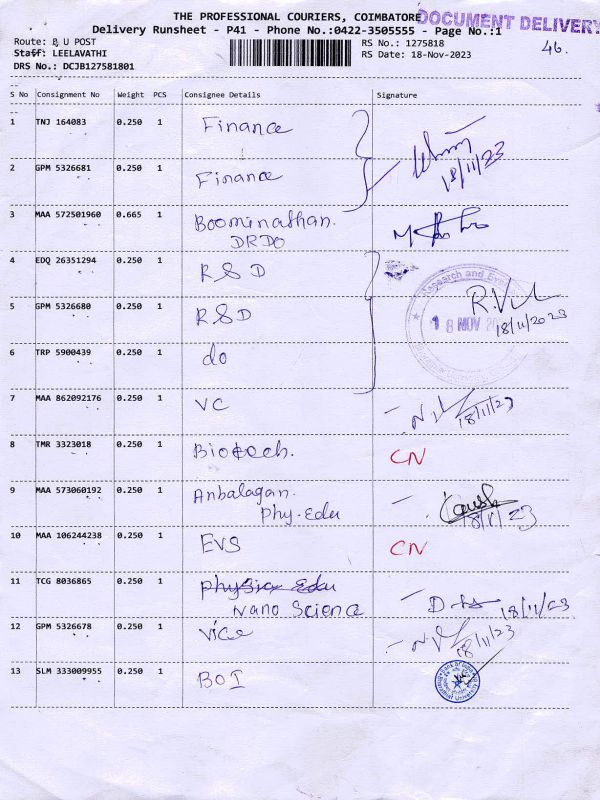 THE PROFESSIONAL COURIERS, COIMBATORE
DOCUMENT DELIVERY
Delivery Runsheet - P41 - Phone No.:0422-3505555 - Page No.:1
Route: B U POST
RS No.: 1275818
46.
Staff: LEELAVATHI
RS Date: 18-Nov-2023
DRS No.: DCJB127581801
S No Consignment No Weight PCS Consignee Details Signature
1 TNJ 164083 0.250 1 Finance
18/11/23
2 GPM 5326681 0.250 1 Finance
3 MAA 572501960 0.665 1 Boominathan.
DRDO
4 EDQ 26351294 0.250 1 R&D
Research and
5 GPM 5326680 0.250 1 R&D
18 NOV
18/11/2023
6 TRP 5900439 0.250 1 do
7 MAA 862092176 0.250 1 VC
18/11/23
8 TMR 3323018 0.250 1 Biotech. CN
9 MAA 573060192 0.250 1 Anbalagan.
Phy-Edu
10 MAA 106244238 0.250 1 EVS CN
11 TCG 8036865 0.250 1 Physics Edu
Nano Science
18/11/23
12 GPM 5326678 0.250 1 Vice
18/11/23
13 SLM 333009955 0.250 1 BOI